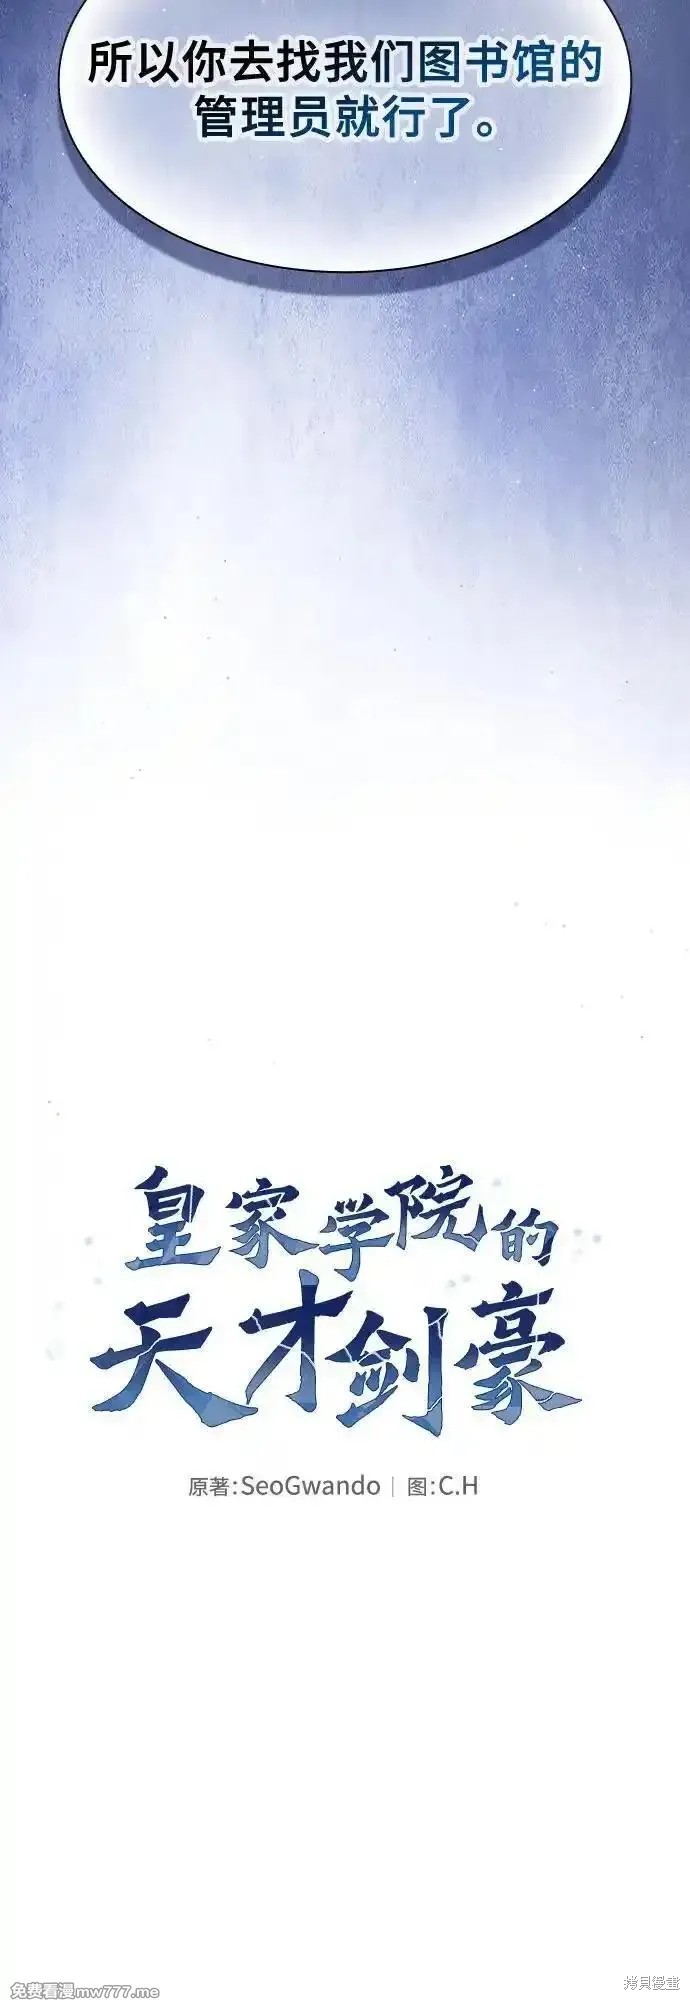 所以你去找我们图书馆的
管理员就行了。
皇家学院的
天才剑豪
原著:SeoGwando | 图:C.H
免费看漫mw777.me
拷貝漫畫